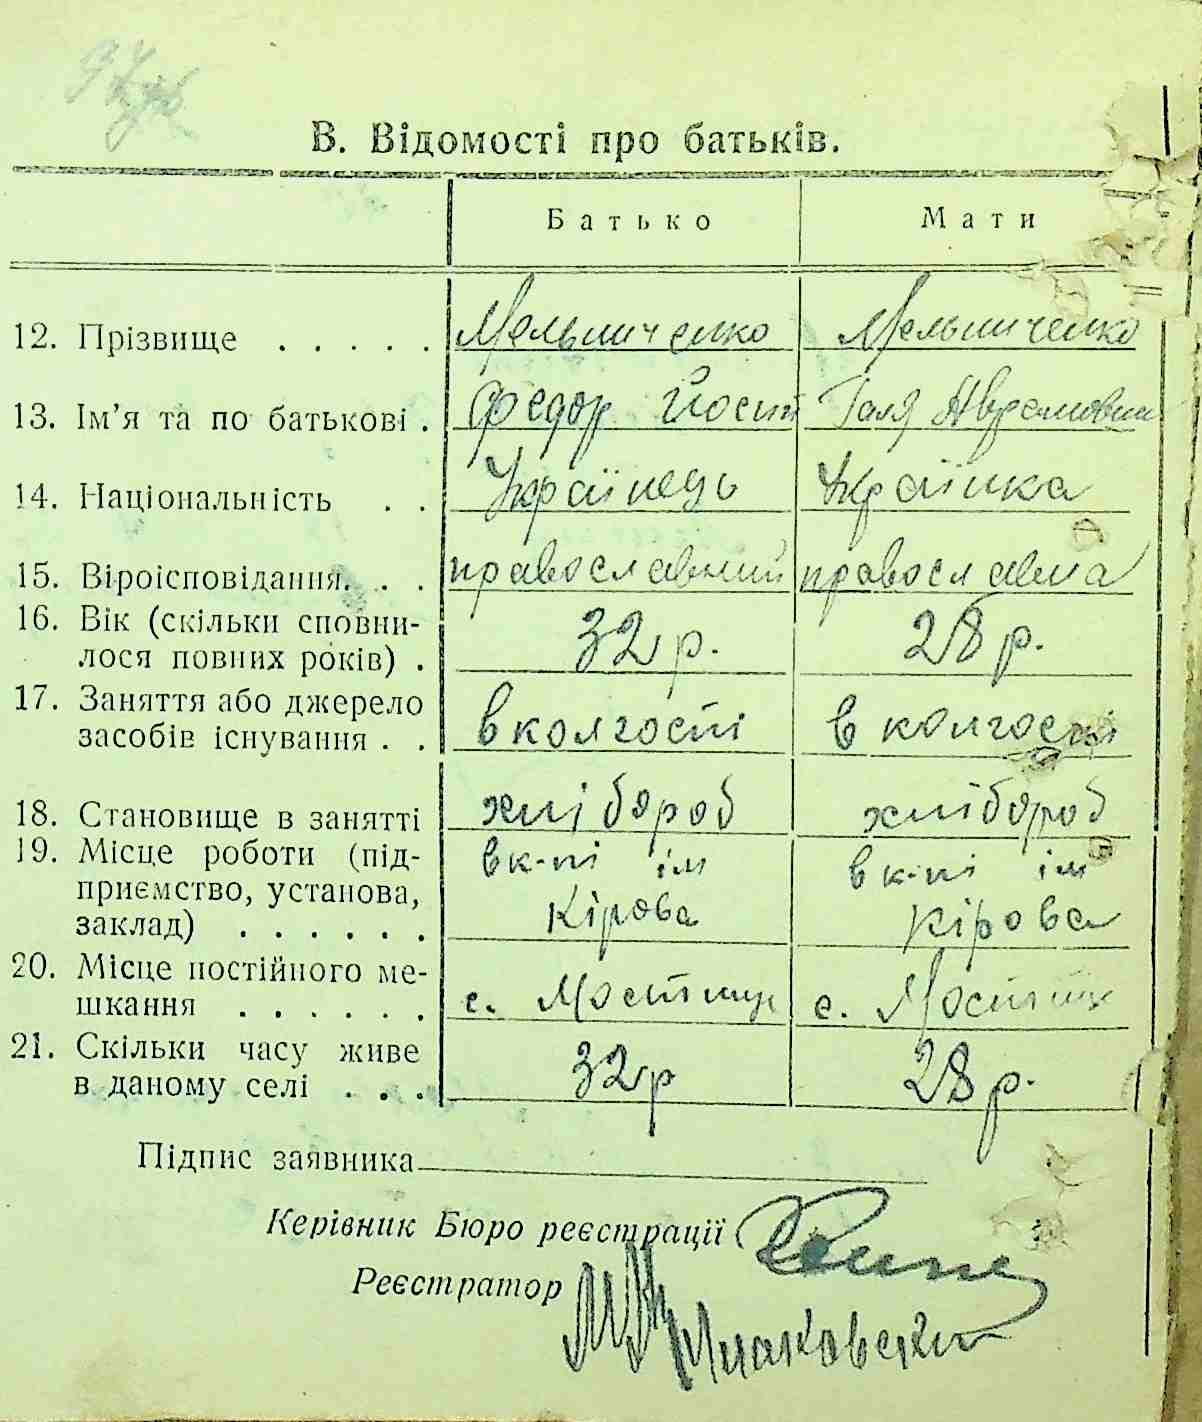 В. Відомості про батьків.
Батько Мати
12. Прізвище . . . . . Мельниченко Мельниченко
13. Ім’я та по батькові . Федор Йосип Галя Аврамовна
14. Національність . . Українець Українка
15. Віроісповідання. . . православний православна
16. Вік (скільки сповни-
лося повних років) . 32 р. 28 р.
17. Заняття або джерело
засобів існування . . в колгоспі в колгоспі
18. Становище в занятті хлібороб хлібороб
19. Місце роботи (під- в к-пі ім в к-пі ім
приємство, установа,
заклад) . . . . . . Кірова Кірова
20. Місце постійного ме-
шкання . . . . . . с. Мостище с. Мостище
21. Скільки часу живе
в даному селі . . . 32 р 28 р.
Підпис заявника
Керівник Бюро реєстрації
Реєстратор